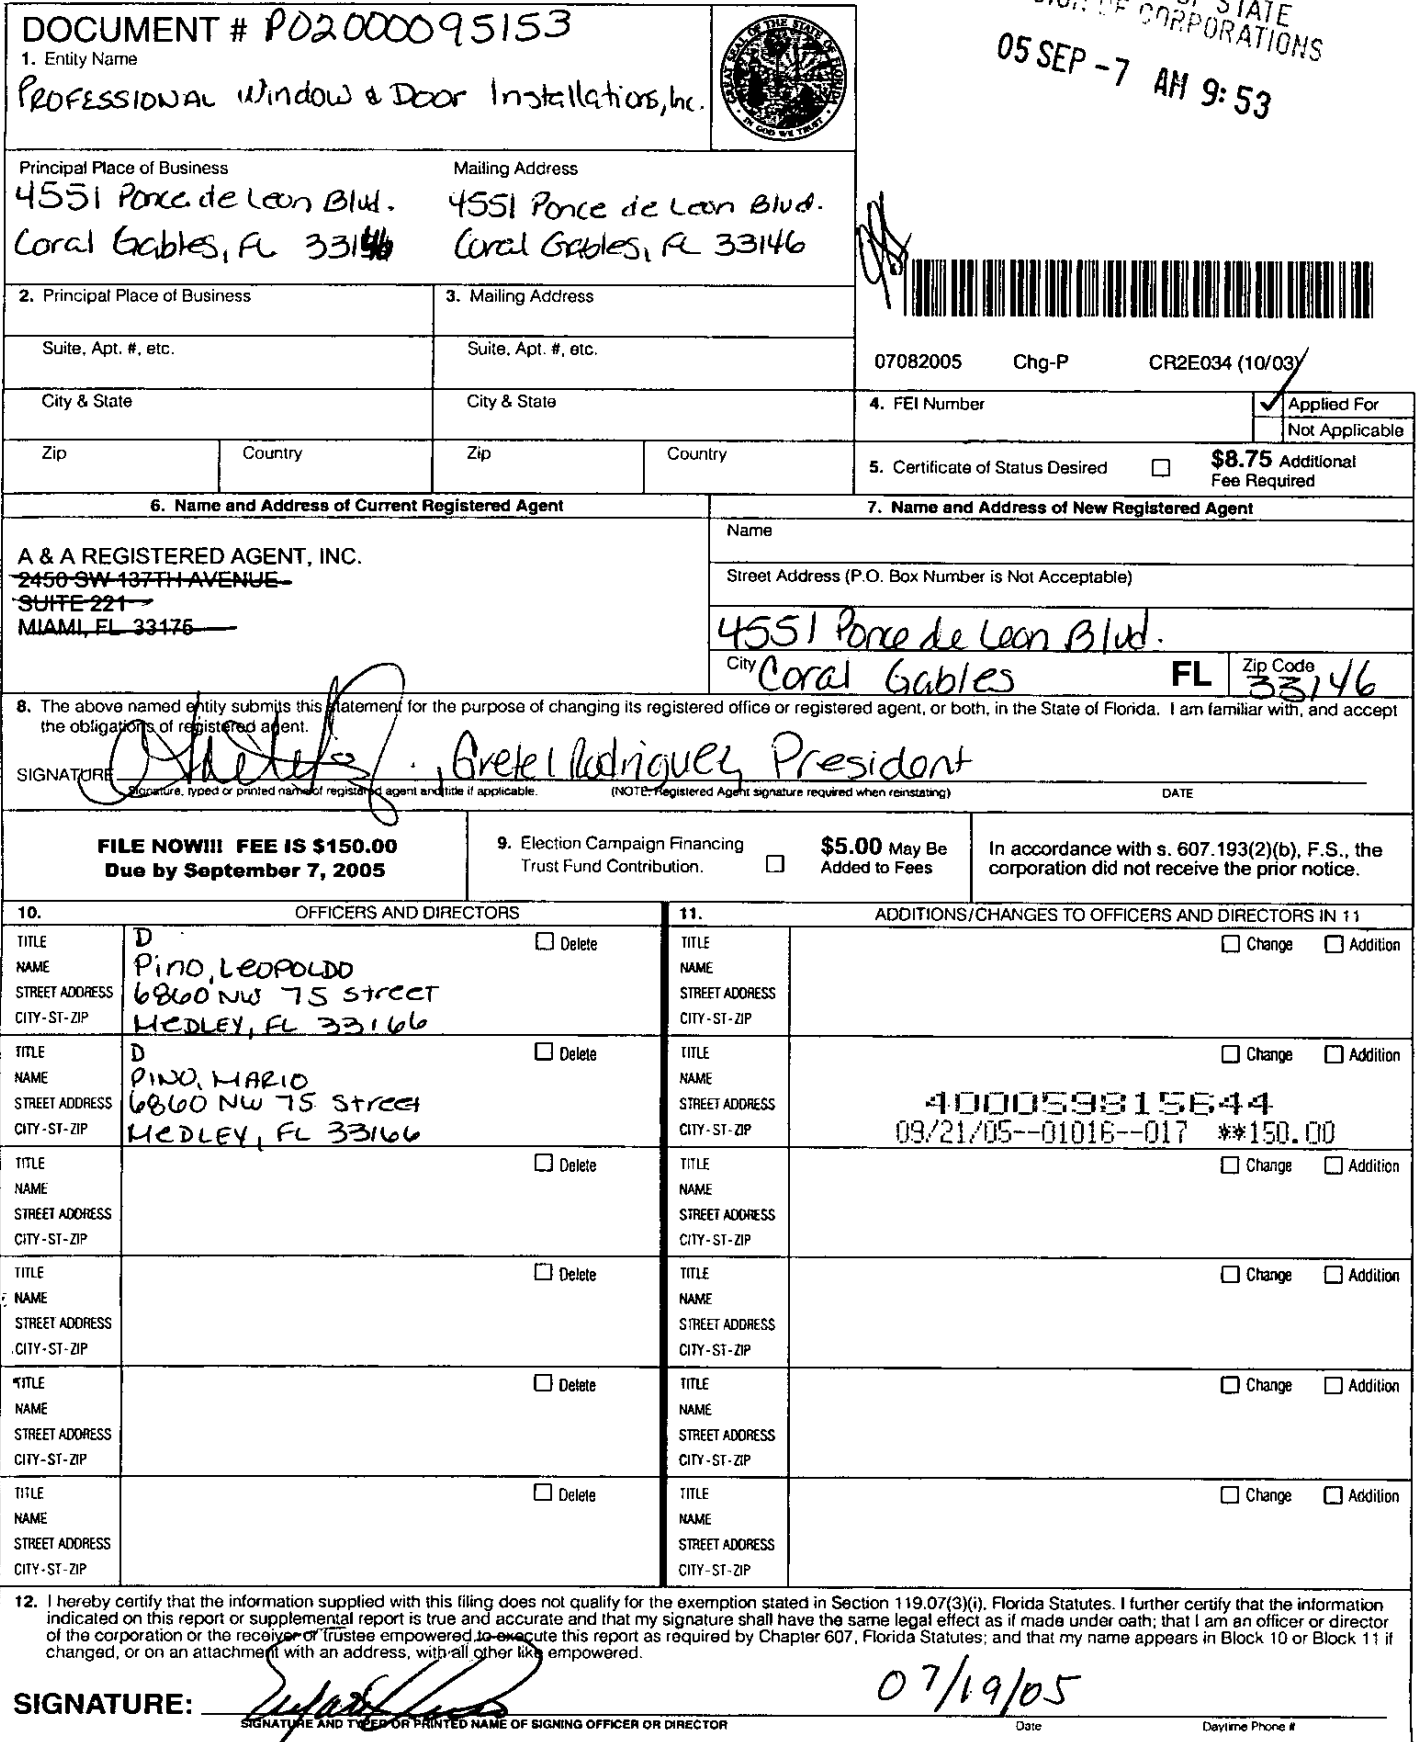 DOCUMENT # P02000095153
OF STATE
OF CORPORATIONS
05 SEP -7 AM 9:53
1. Entity Name
PROFESSIONAL Window & Door Installations, Inc.
GREAT SEAL OF THE STATE OF FLORIDA
IN GOD WE TRUST
Principal Place of Business
4551 Ponce de Leon Blvd.
Coral Gables, FL 33146
Mailing Address
4551 Ponce de Leon Blvd.
Coral Gables, FL 33146
2. Principal Place of Business
3. Mailing Address
Suite, Apt. #, etc.
Suite, Apt. #, etc.
City & State
City & State
Zip
Country
Zip
Country
07082005 Chg-P CR2E034 (10/03)
4. FEI Number
✓ Applied For
Not Applicable
5. Certificate of Status Desired
$8.75 Additional
Fee Required
6. Name and Address of Current Registered Agent
A & A REGISTERED AGENT, INC.
2450 SW 137TH AVENUE
SUITE 221
MIAMI, FL 33175
7. Name and Address of New Registered Agent
Name
Street Address (P.O. Box Number is Not Acceptable)
4551 Ponce de Leon Blvd.
City Coral Gables FL Zip Code 33146
8. The above named entity submits this statement for the purpose of changing its registered office or registered agent, or both, in the State of Florida. I am familiar with, and accept
the obligations of registered agent.
SIGNATURE , Gretel Rodriguez, President
Signature, typed or printed name of registered agent and title if applicable. (NOTE: Registered Agent signature required when reinstating) DATE
FILE NOW!!! FEE IS $150.00
Due by September 7, 2005
9. Election Campaign Financing
Trust Fund Contribution.
$5.00 May Be
Added to Fees
In accordance with s. 607.193(2)(b), F.S., the
corporation did not receive the prior notice.
10. OFFICERS AND DIRECTORS
11. ADDITIONS/CHANGES TO OFFICERS AND DIRECTORS IN 11
TITLE D Delete
NAME Pino, LEOPOLDO
STREET ADDRESS 6860 NW 75 Street
CITY-ST-ZIP MEDLEY, FL 33166
TITLE Change Addition
NAME
STREET ADDRESS
CITY-ST-ZIP
TITLE D Delete
NAME PINO, MARIO
STREET ADDRESS 6860 NW 75 Street
CITY-ST-ZIP MEDLEY, FL 33166
TITLE Change Addition
NAME
STREET ADDRESS 400059815644
CITY-ST-ZIP 09/21/05--01016--017 **150.00
TITLE Delete
NAME
STREET ADDRESS
CITY-ST-ZIP
TITLE Change Addition
NAME
STREET ADDRESS
CITY-ST-ZIP
TITLE Delete
NAME
STREET ADDRESS
CITY-ST-ZIP
TITLE Change Addition
NAME
STREET ADDRESS
CITY-ST-ZIP
TITLE Delete
NAME
STREET ADDRESS
CITY-ST-ZIP
TITLE Change Addition
NAME
STREET ADDRESS
CITY-ST-ZIP
TITLE Delete
NAME
STREET ADDRESS
CITY-ST-ZIP
TITLE Change Addition
NAME
STREET ADDRESS
CITY-ST-ZIP
12. I hereby certify that the information supplied with this filing does not qualify for the exemption stated in Section 119.07(3)(i), Florida Statutes. I further certify that the information
indicated on this report or supplemental report is true and accurate and that my signature shall have the same legal effect as if made under oath; that I am an officer or director
of the corporation or the receiver or trustee empowered to execute this report as required by Chapter 607, Florida Statutes; and that my name appears in Block 10 or Block 11 if
changed, or on an attachment with an address, with all other like empowered.
SIGNATURE: 07/19/05
SIGNATURE AND TYPED OR PRINTED NAME OF SIGNING OFFICER OR DIRECTOR Date Daytime Phone #